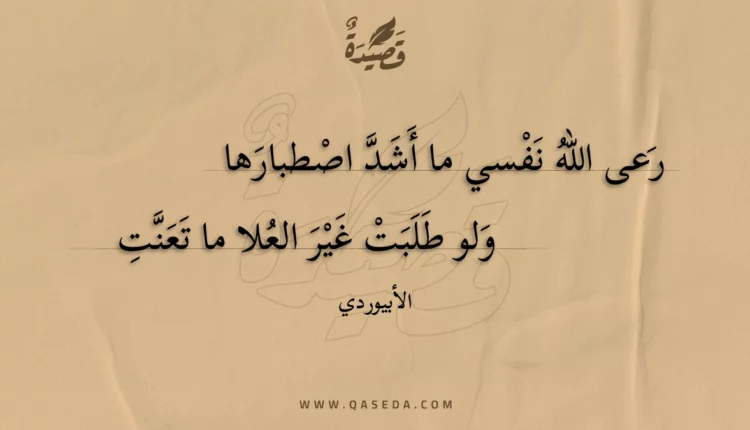 قَصِيدَةٌ
رَعى اللهُ نَفْسي ما أَشَدَّ اصْطبارَها
وَلو طَلَبَتْ غَيْرَ العُلا ما تَعَنَّتِ
الأبيوردي
WWW.QASEDA.COM